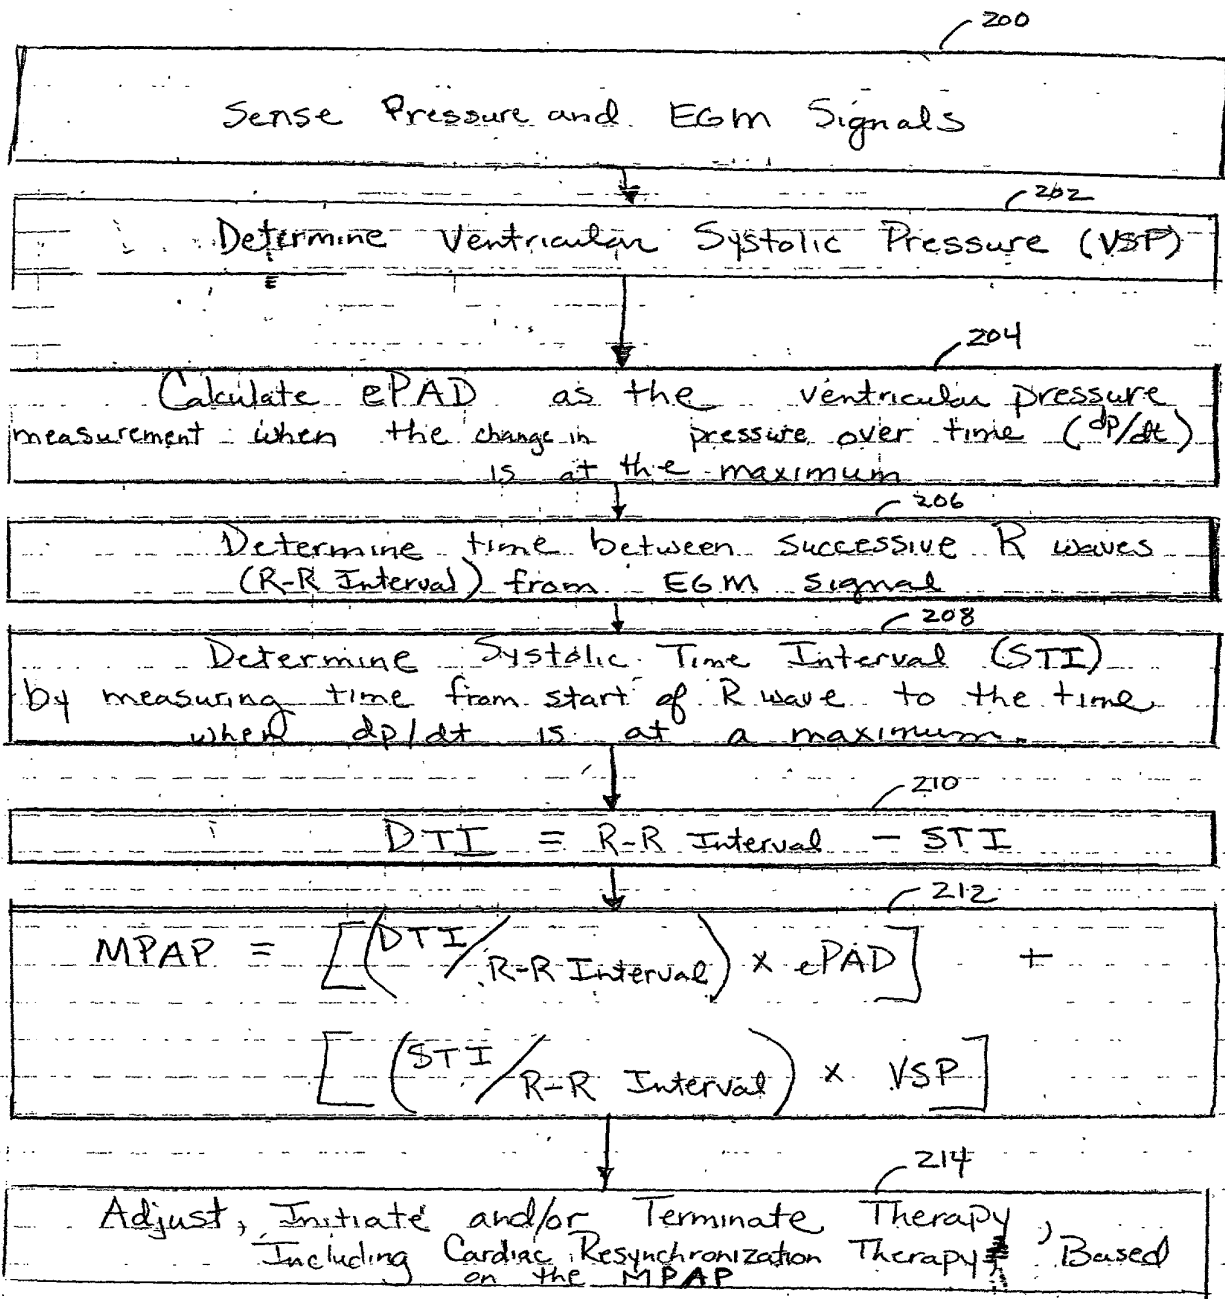 200
Sense Pressure and EGM Signals
202
Determine Ventricular Systolic Pressure (VSP)
204
Calculate ePAD as the ventricular pressure
measurement when the change in pressure over time (dp/dt)
is at the maximum
206
Determine time between successive R waves
(R-R Interval) from EGM signal
208
Determine Systolic Time Interval (STI)
by measuring time from start of R wave to the time
when dp/dt is at a maximum.
210
DTI = R-R Interval - STI
212
MPAP = [(DTI/R-R Interval) x ePAD] +
[(STI/R-R Interval) x VSP]
214
Adjust, Initiate and/or Terminate Therapy,
Including Cardiac Resynchronization Therapy, Based
on the MPAP